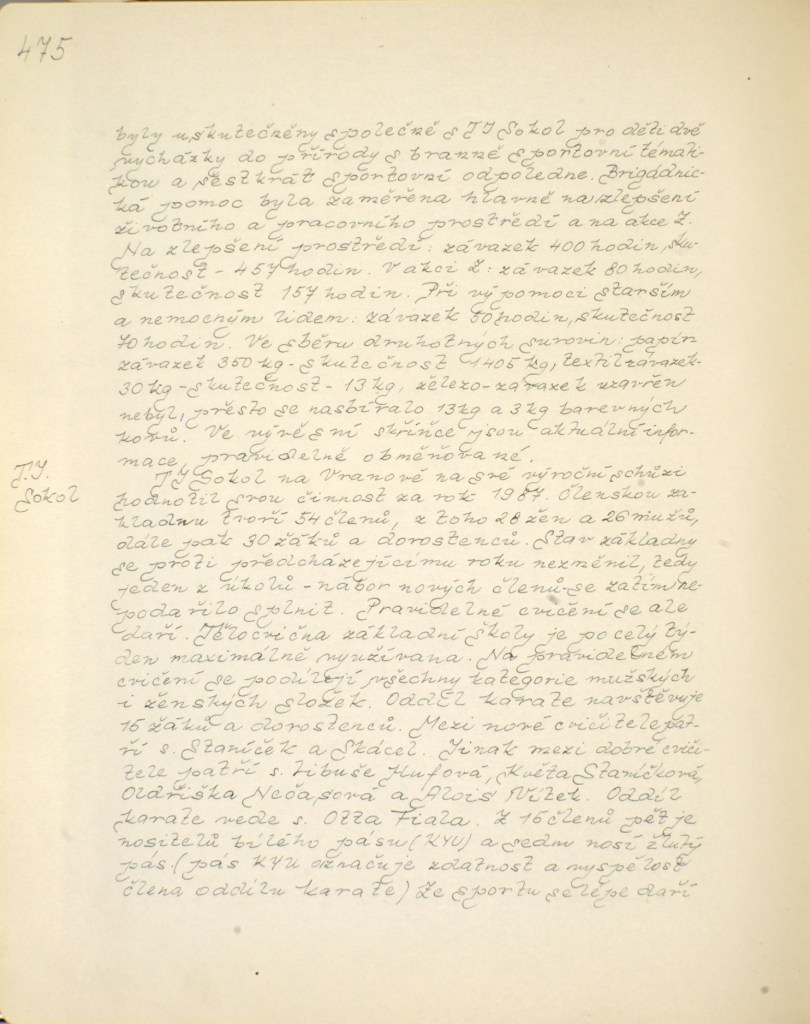 475
byly uskutečněny společně s TJ Sokol pro děti dvě
vycházky do přírody s branně sportovní témati-
kou a šestkrát sportovní odpoledne. Brigádnic-
ká pomoc byla zaměřena hlavně na zlepšení
životního a pracovního prostředí a na akce Z.
Na zlepšení prostředí: závazek 400 hodin, sku-
tečnost - 457 hodin. V akci Z: závazek 80 hodin,
skutečnost 157 hodin. Při výpomoci starším
a nemocným lidem: závazek 50 hodin, skutečnost
70 hodin. Ve sběru druhotných surovin: papír
závazek 350 kg - skutečnost 1405 kg, textil závazek
30 kg - skutečnost - 13 kg, železo - závazek uzavřen
nebyl, přesto se nasbíralo 13 kg a 3 kg barevných
kovů. Ve vývěsní skříňce jsou aktuální infor-
mace, pravidelně obměňované.
T.J.
Sokol
TJ Sokol na Vranově na své výroční schůzi
hodnotil svou činnost za rok 1987. Členskou zá-
kladnu tvoří 54 členů, z toho 28 žen a 26 mužů,
dále pak 30 žáků a dorostenců. Stav základny
se proti předcházejícímu roku nezměnil, tedy
jeden z úkolů - nábor nových členů - se zatím ne-
podařilo splnit. Pravidelné cvičení se ale
daří. Tělocvična základní školy je po celý tý-
den maximálně využívana. Na pravidelném
cvičení se podílejí všechny kategorie mužských
i ženských složek. Oddíl karate navštěvuje
15 žáků a dorostenců. Mezi nové cvičitele pat-
ří s. Staníček a Skácel. Jinak mezi dobré cviči-
tele patří s. Libuše Hufová, Květa Staníčková,
Oldřiška Nečasová a Alois Vítek. Oddíl
karate vede s. Otta Fiala. Z 15 členů pět je
nositelů bílého pásu (KYU) a sedm nosí žlutý
pás (pás KYU označuje zdatnost a vyspělost
člena oddílu karate) Ze sportu se lépe daří